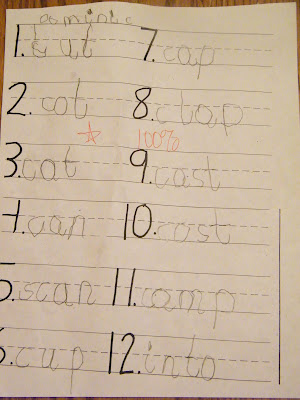 dominic
1. 7. cap
2. cot 8.
100%
3. cat 9. cast
4. can 10. cost
5. scan 11. camp
6. cup 12. into